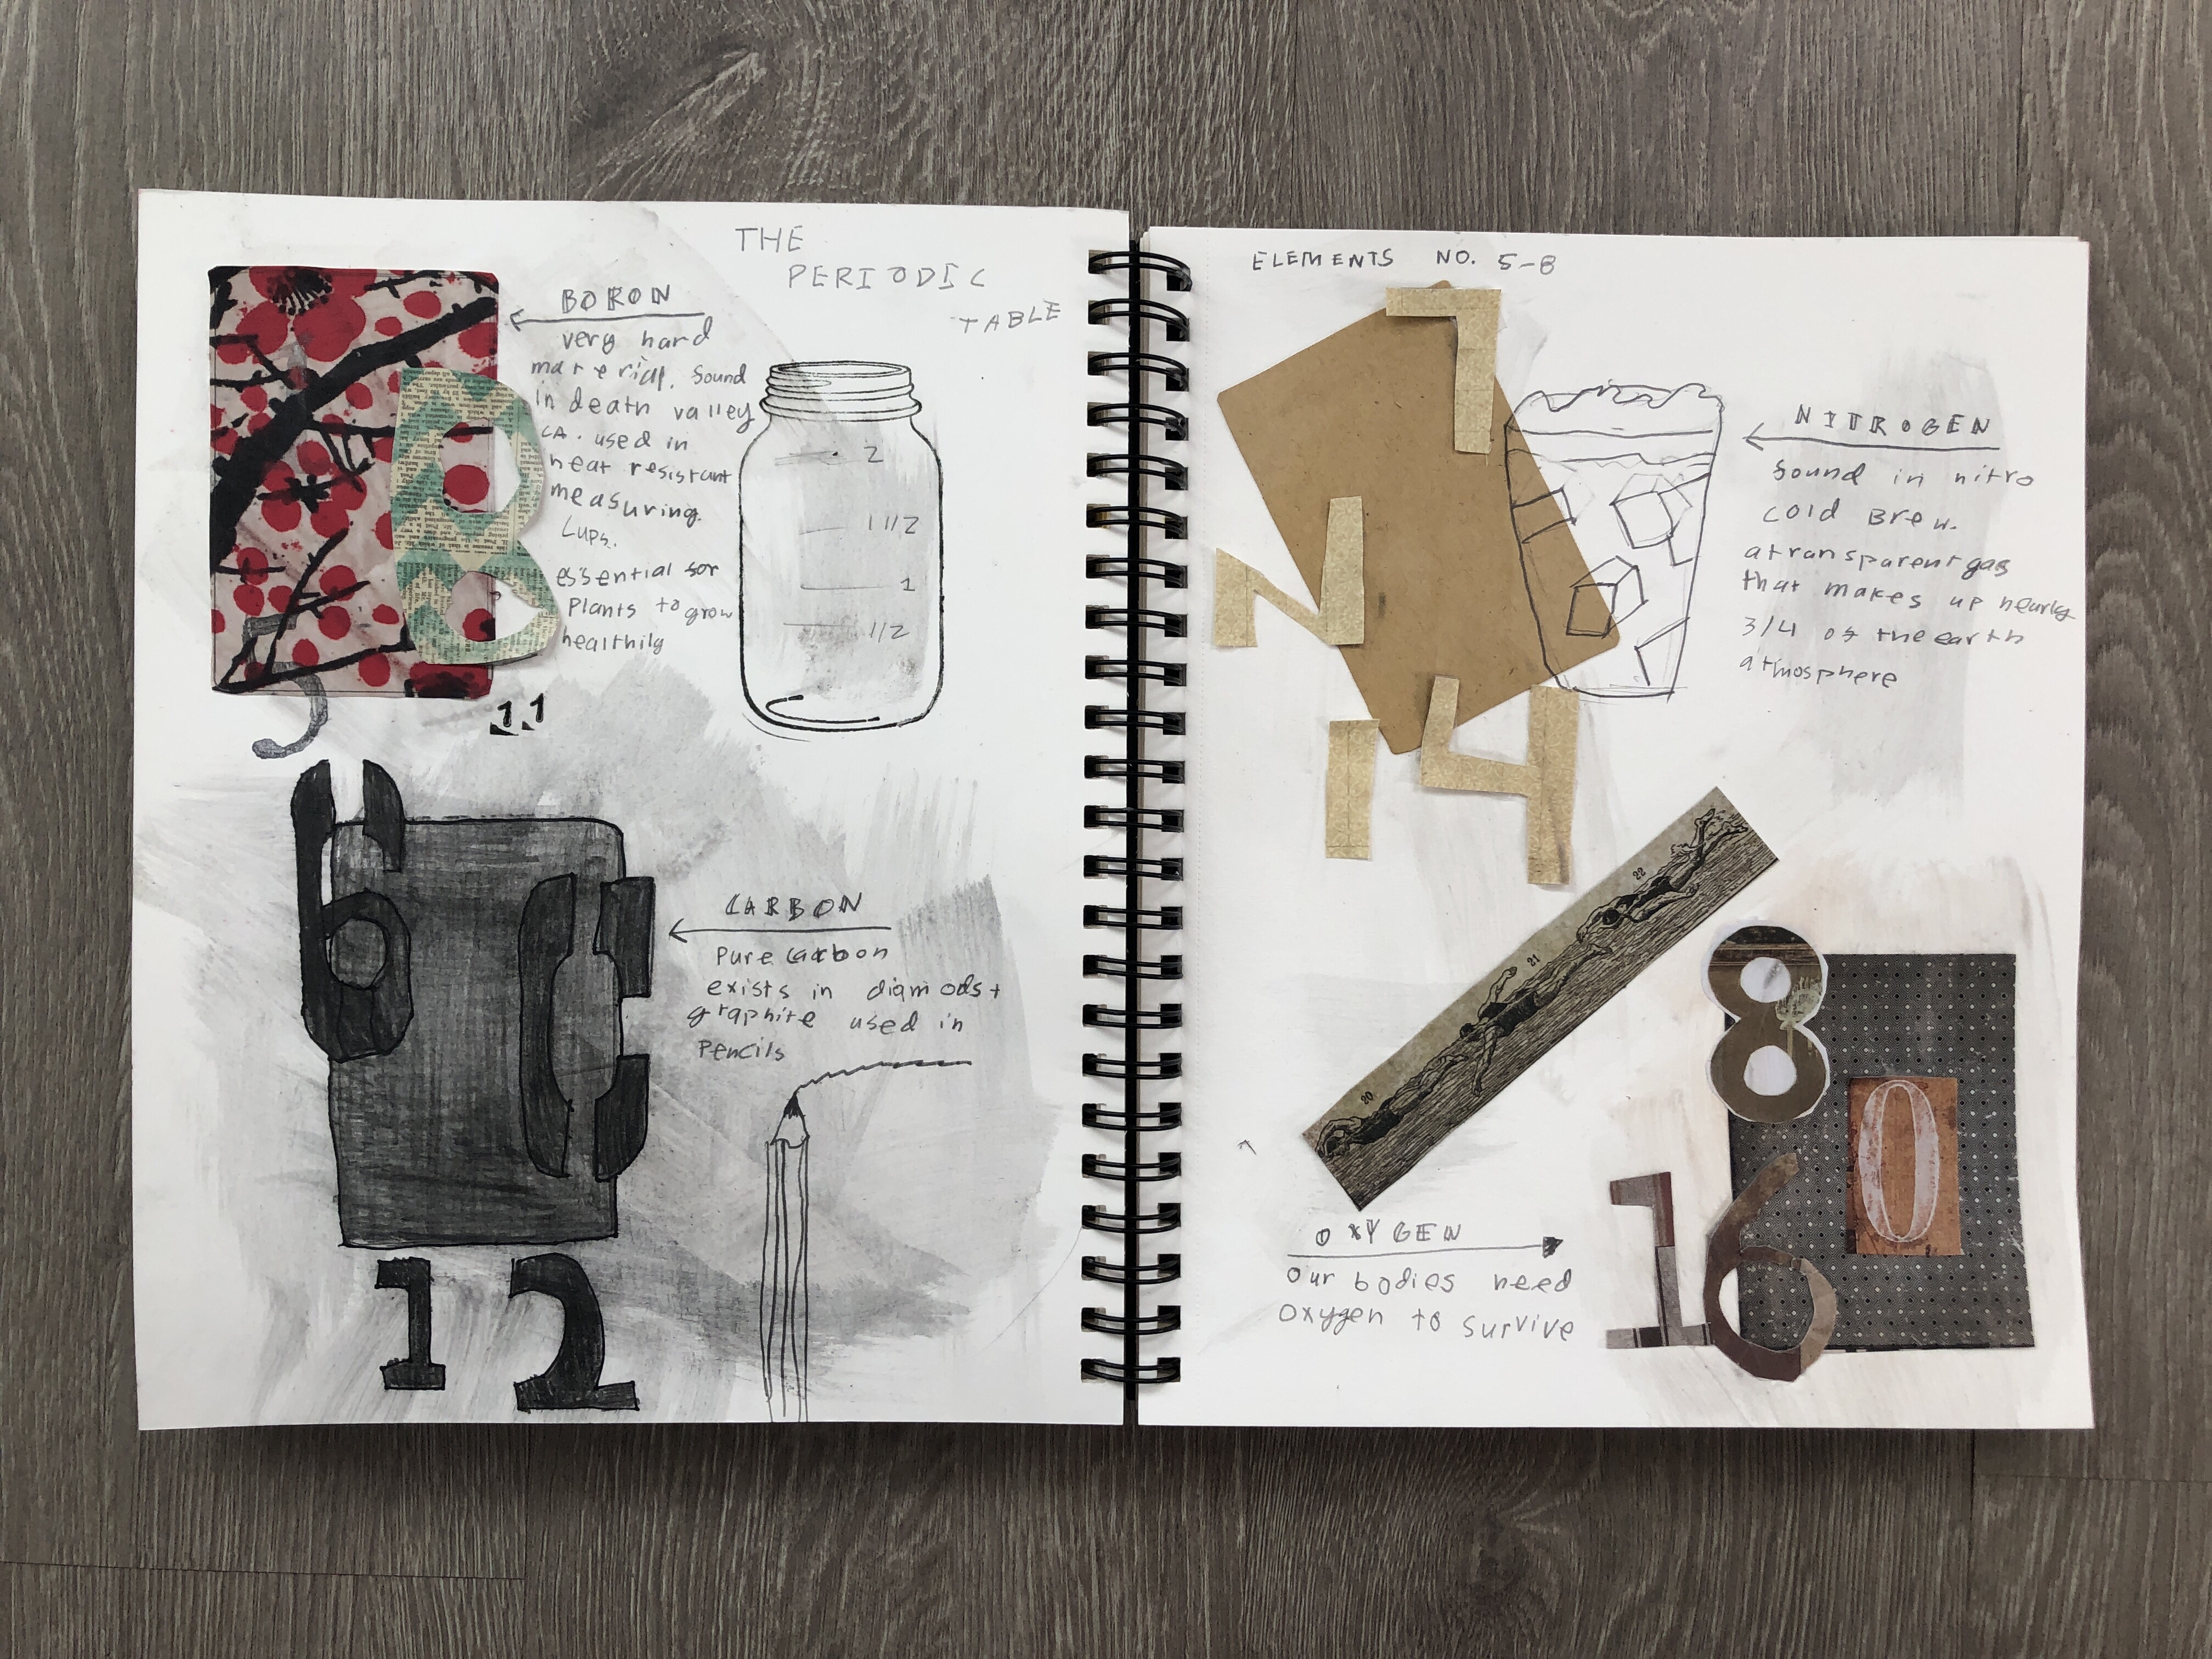 THE
PERIODIC
TABLE
BORON
very hard
material. found
in death valley
CA. used in
heat resistant
measuring
cups.
essential for
plants to grow
healthily
B
5
11
2
1 1/2
1
1/2
6
C
12
CARBON
Pure carbon
exists in diamods +
graphite used in
pencils
ELEMENTS NO. 5-8
7
N
14
NITROGEN
found in nitro
cold Brew.
a transparent gas
that makes up nearly
3/4 of the earth
atmosphere
22
21
20
8
O
16
OXYGEN
our bodies need
oxygen to survive